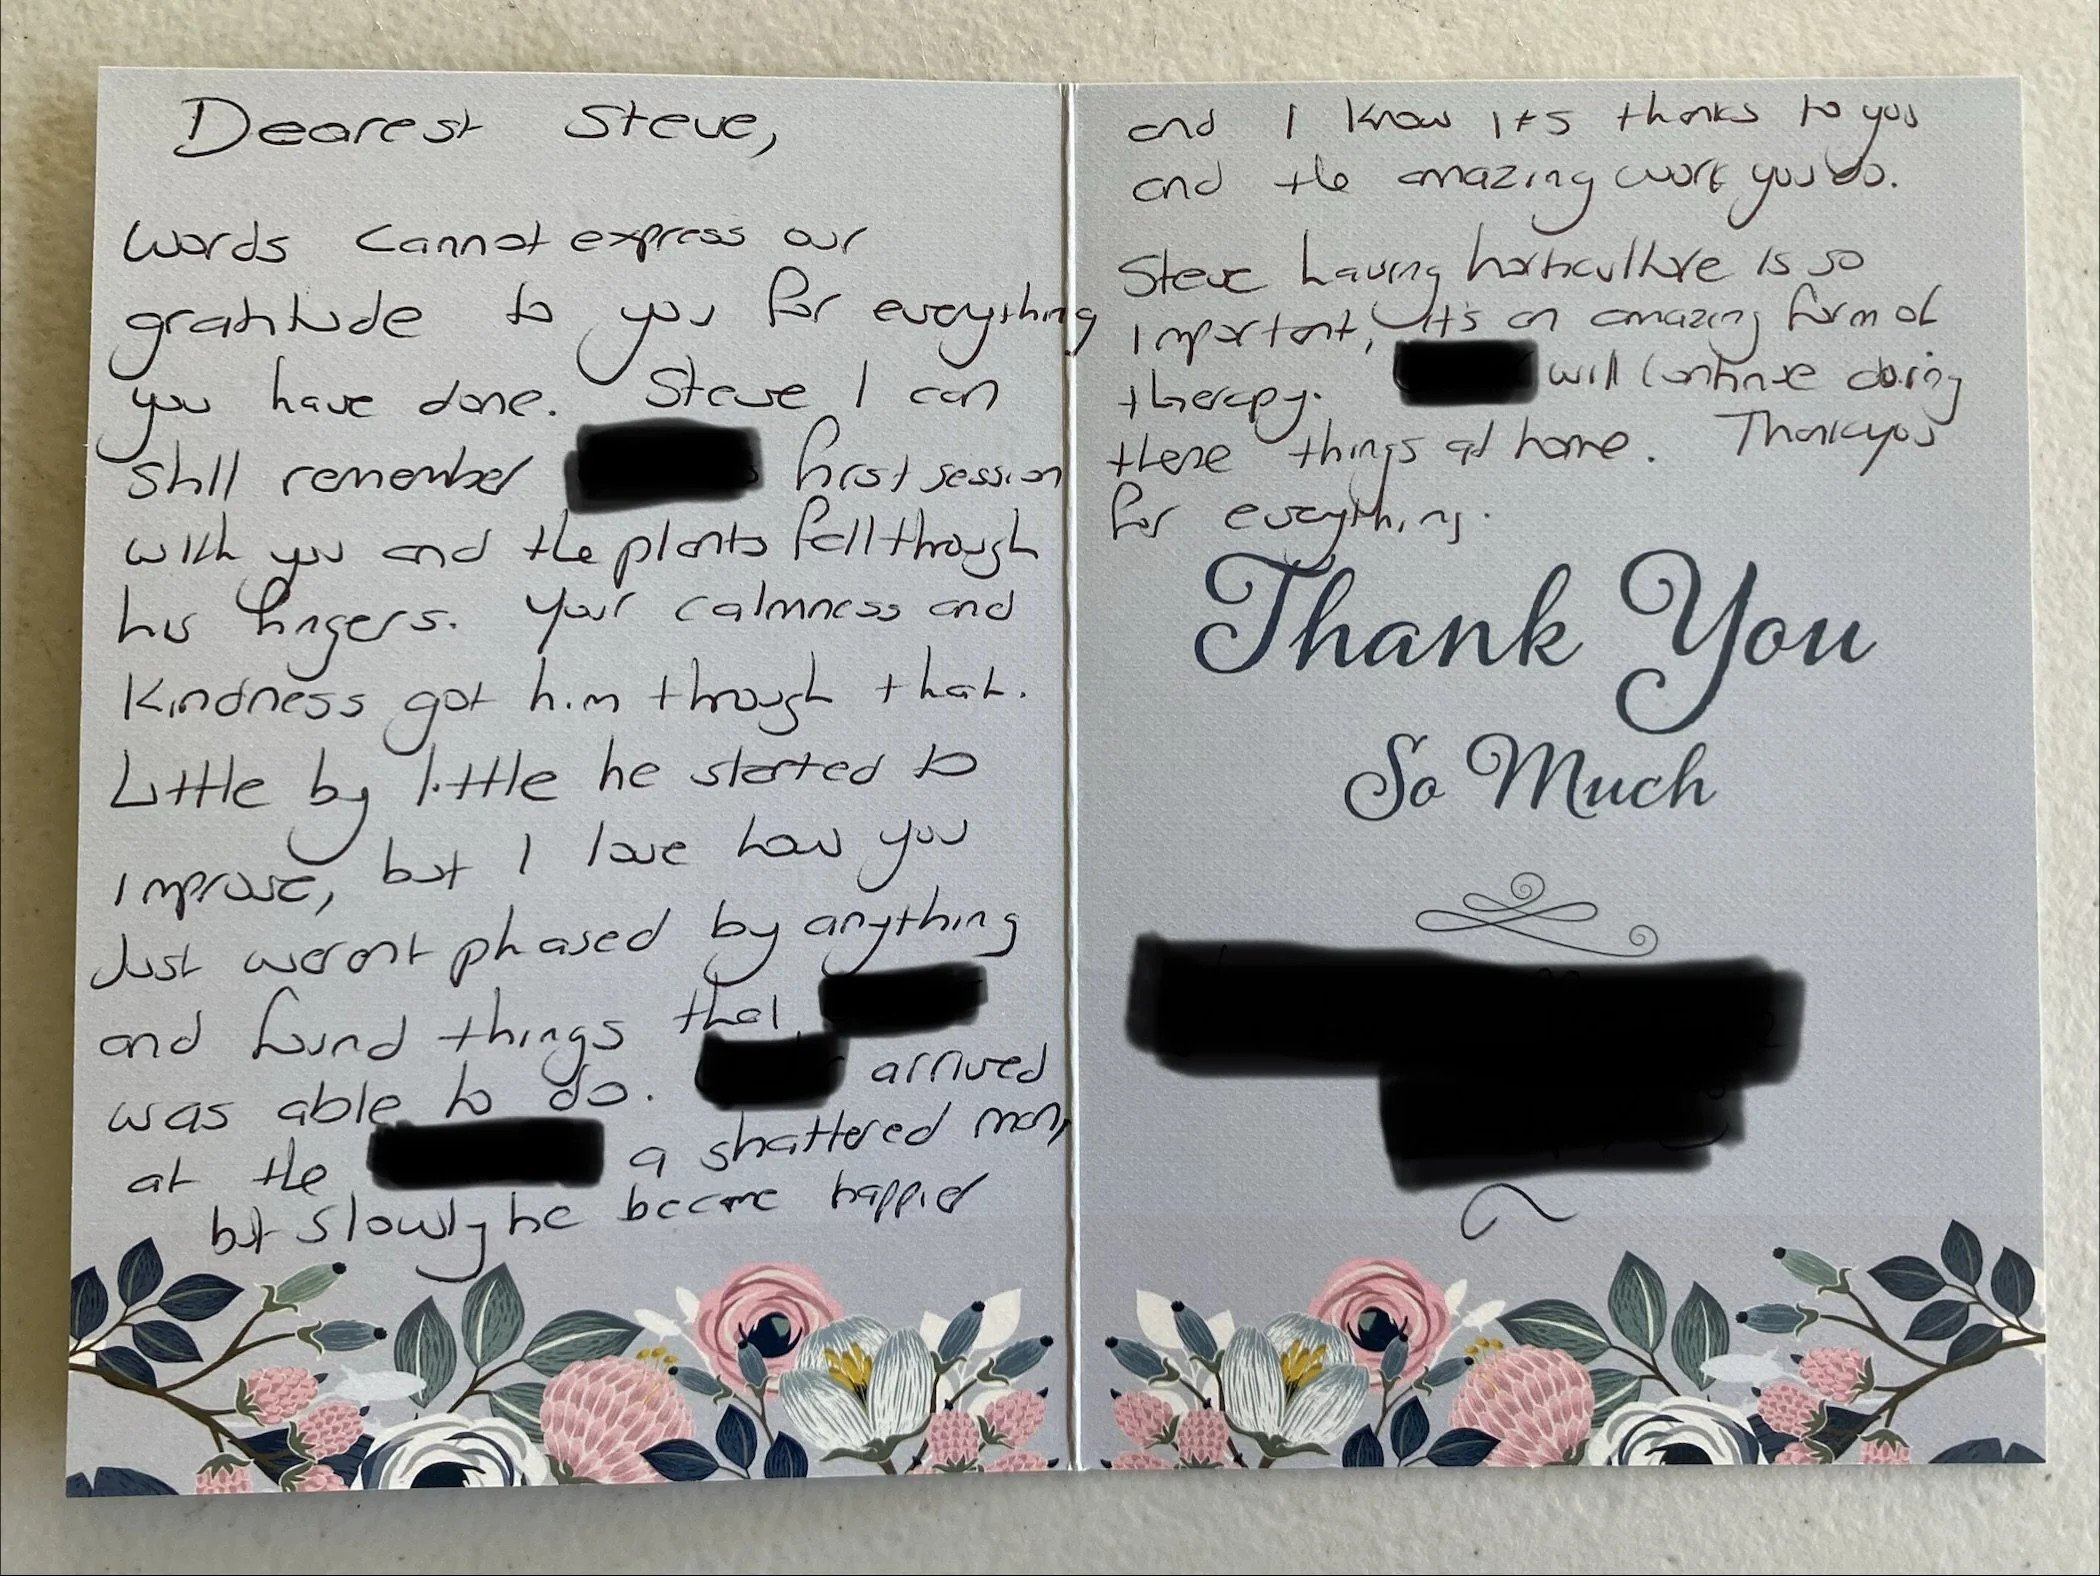 Dearest Steve,
Words cannot express our
gratitude to you for everything
you have done. Steve I can
still remember first session
with you and the plants fell through
his fingers. Your calmness and
kindness got him through that.
Little by little he started to
improve, but I love how you
just werent phased by anything
and found things that
was able to do. arrived
at the a shattered man,
but slowly he became happier
and I know its thanks to you
and the amazing work you do.
Steve having horticulture is so
important, it's an amazing form of
therapy. will continue doing
these things at home. Thankyou
for everything.
Thank You
So Much